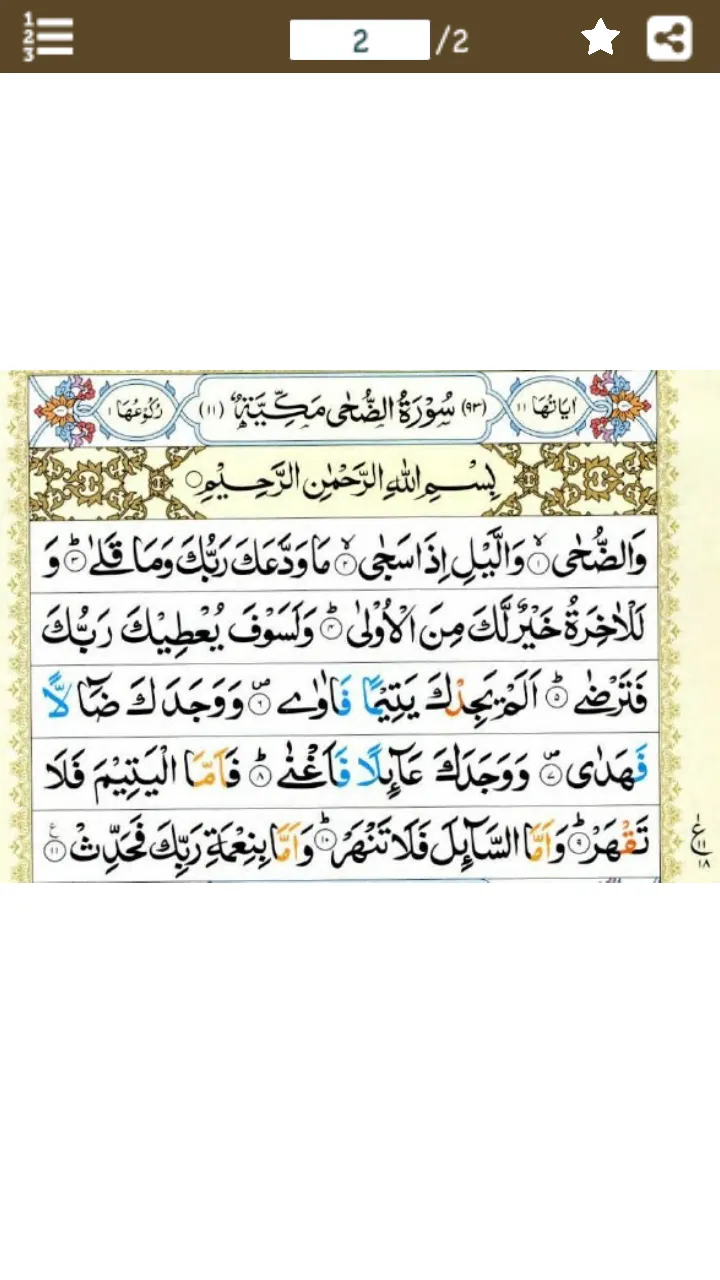 1
2
3
2 /2
اٰيَاتُهَا ١١ (٩٣) سُوْرَةُ الضُّحٰى مَكِّيَّةٌ (١١) رُكُوْعُهَا ١
بِسْمِ اللهِ الرَّحْمٰنِ الرَّحِيْمِ
وَالضُّحٰى ۙ﴿١﴾ وَالَّيْلِ اِذَا سَجٰى ۙ﴿٢﴾ مَا وَدَّعَكَ رَبُّكَ وَمَا قَلٰى ؕ﴿٣﴾ وَ
لَلْاٰخِرَةُ خَيْرٌ لَّكَ مِنَ الْاُوْلٰى ؕ﴿٤﴾ وَلَسَوْفَ يُعْطِيْكَ رَبُّكَ
فَتَرْضٰى ؕ﴿٥﴾ اَلَمْ يَجِدْكَ يَتِيْمًا فَاٰوٰى ۪﴿٦﴾ وَوَجَدَكَ ضَآلًّا
فَهَدٰى ۪﴿٧﴾ وَوَجَدَكَ عَآئِلًا فَاَغْنٰى ؕ﴿٨﴾ فَاَمَّا الْيَتِيْمَ فَلَا
تَقْهَرْ ؕ﴿٩﴾ وَاَمَّا السَّآئِلَ فَلَا تَنْهَرْ ؕ﴿١٠﴾ وَاَمَّا بِنِعْمَةِ رَبِّكَ فَحَدِّثْ ﴿١١﴾
ع
١١
١٨